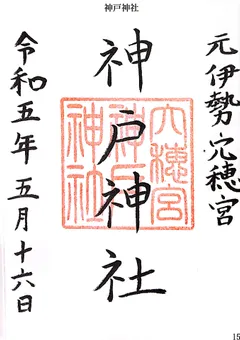 神戸神社
元伊勢穴穂宮
神戸神社
穴穂宮
神戸
神社
令和五年五月十六日
15